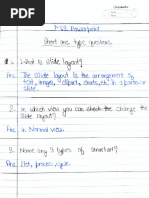 L-13 Powerpoint
Short ans type questions
1. What is slide layout?
Ans. The slide layout is the arrangement of
text, images, clipart, charts, etc. in a particular
slide.
2. In which view you can change the
layout?
Ans. In Normal view.
3. Name any 3 types of smartart?
Ans. List, process, cycle.